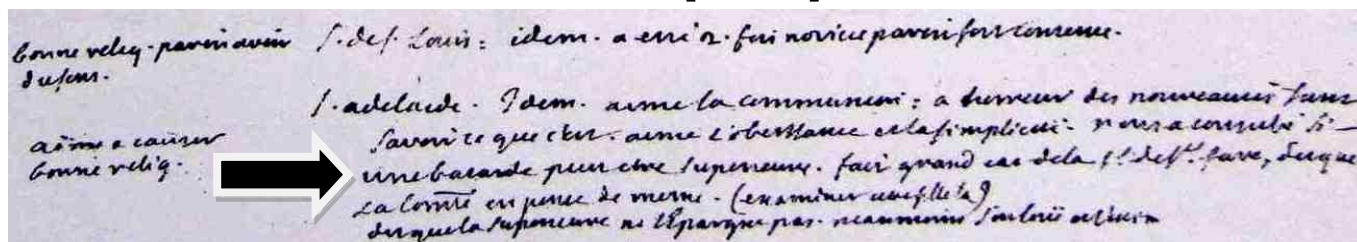 bonne relig. paroit avoir
du sens.
S. de S. Louis: idem. a eté 2. fois novice paroit fort contente.
aime a causer
bonne relig.
S. adelaide. Idem. aime la communauté: a horreur des nouveautés sans
savoir ce que c'est. aime l'obeissance et la simplicité. nous a consulté si
une batarde peut etre superieure. fait grand cas de la Sr. de St. dit que
la Comté en pense de meme. (examiner
dit que la superieure ne l'épargne pas. neanmoins s'en loüe